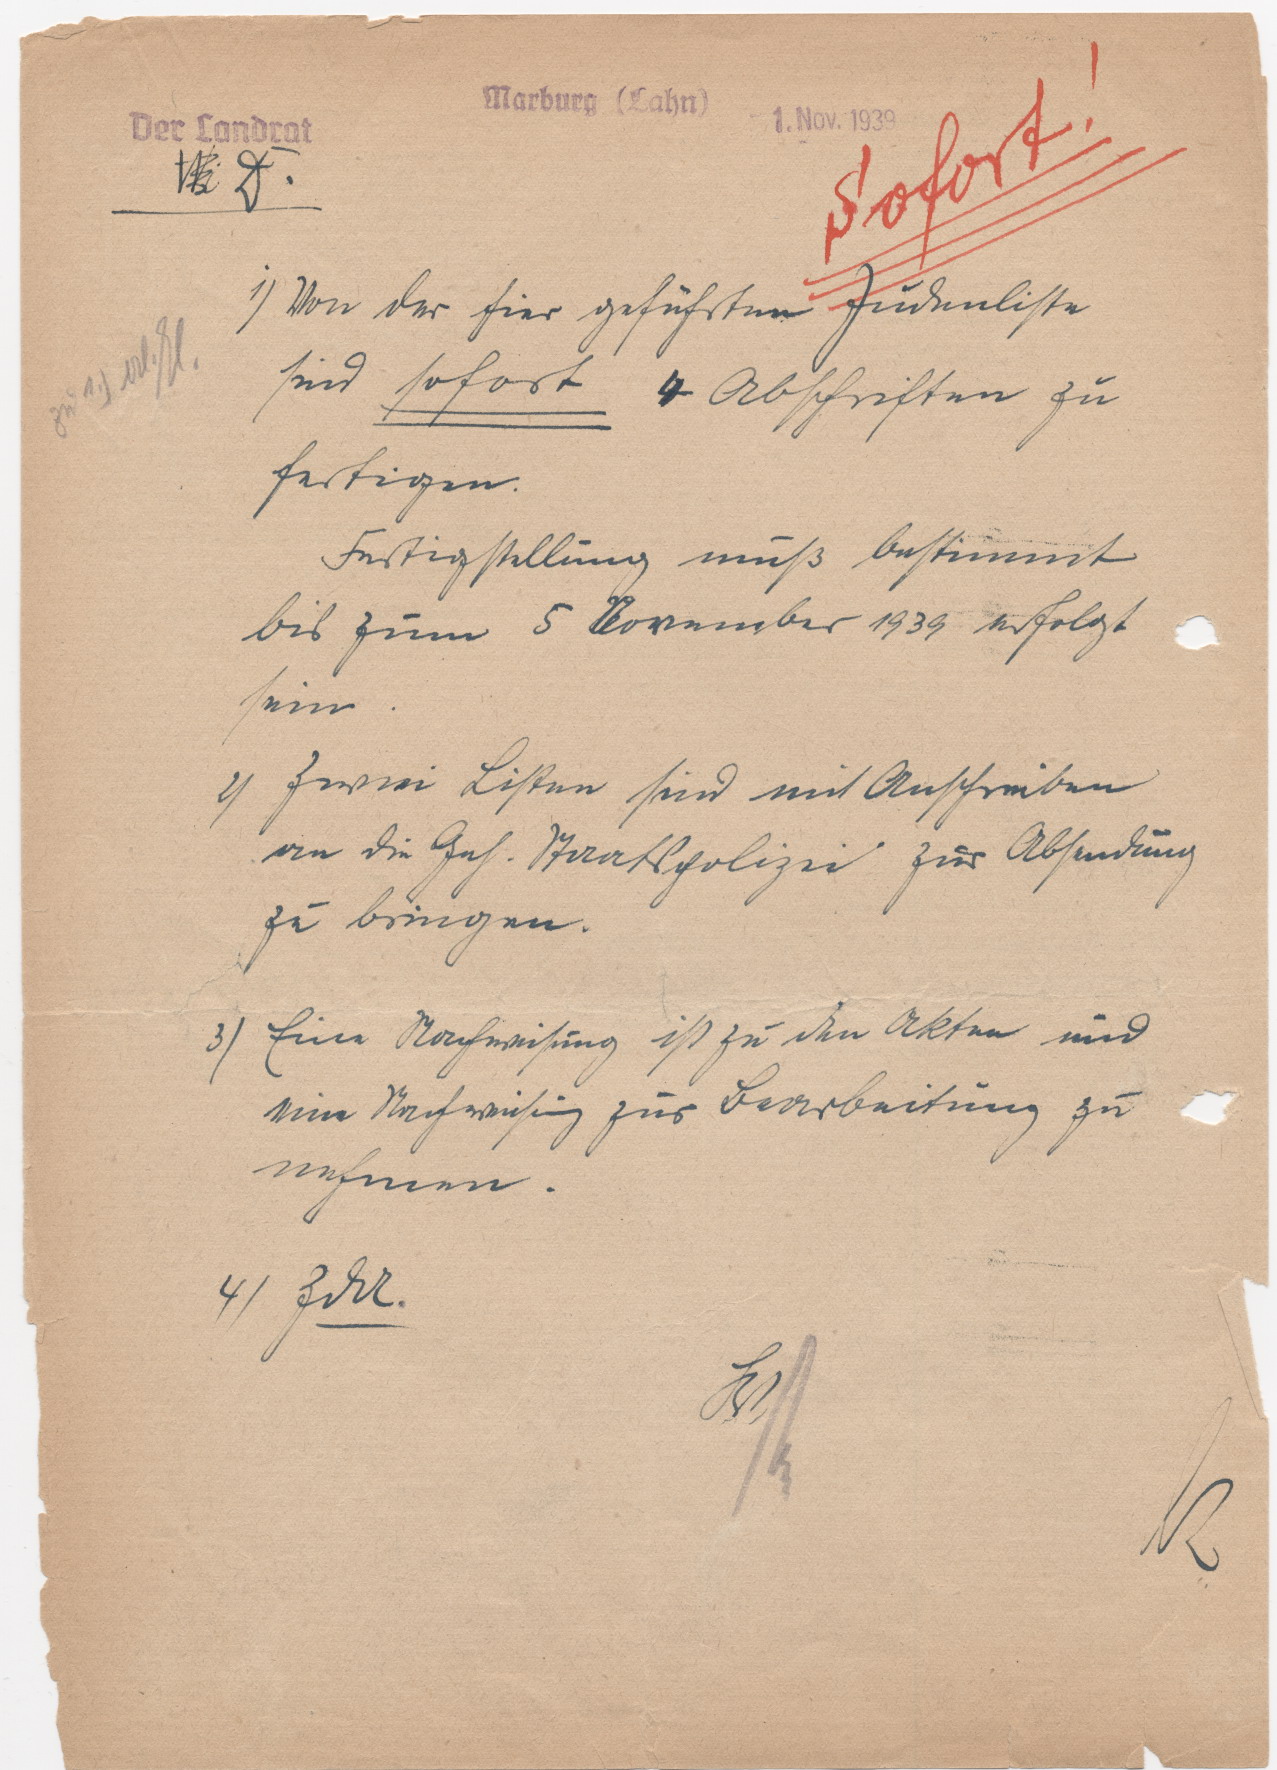 Marburg (Lahn)
1. Nov. 1939
Der Landrat
Sofort!
1) Von der hier geführten Judenliste
sind sofort 4 Abschriften zu
fertigen.
zu 1.) erl.
Fertigstellung muß bestimmt
bis zum 5 November 1939 erfolgt
sein.
2) Zwei Listen sind mit Anschreiben
an die Geh. Staatspolizei zur Absendung
zu bringen.
3) Eine Nachweisung ist zu den Akten und
eine Nachweisung zur Bearbeitung zu
nehmen.
4) ZdA.